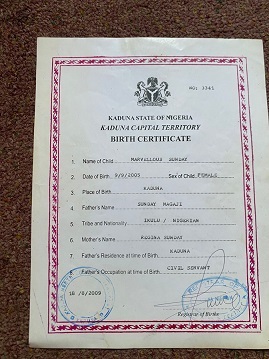 NO: 3341
KADUNA STATE OF NIGERIA
KADUNA CAPITAL TERRITORY
BIRTH CERTIFICATE
1. Name of Child MARVELLOUS SUNDAY
2. Date of Birth 9/9/2005 Sex of Child FEMALE
3. Place of Birth KADUNA
4. Father's Name SUNDAY MAGAJI
5. Tribe and Nationality IKULU / NIGERIAN
6. Mother's Name REGINA SUNDAY
7. Father's Residence at time of Birth KADUNA
8. Father's Occupation at time of Birth CIVIL SERVANT
18/6/2009
Registrar of Births